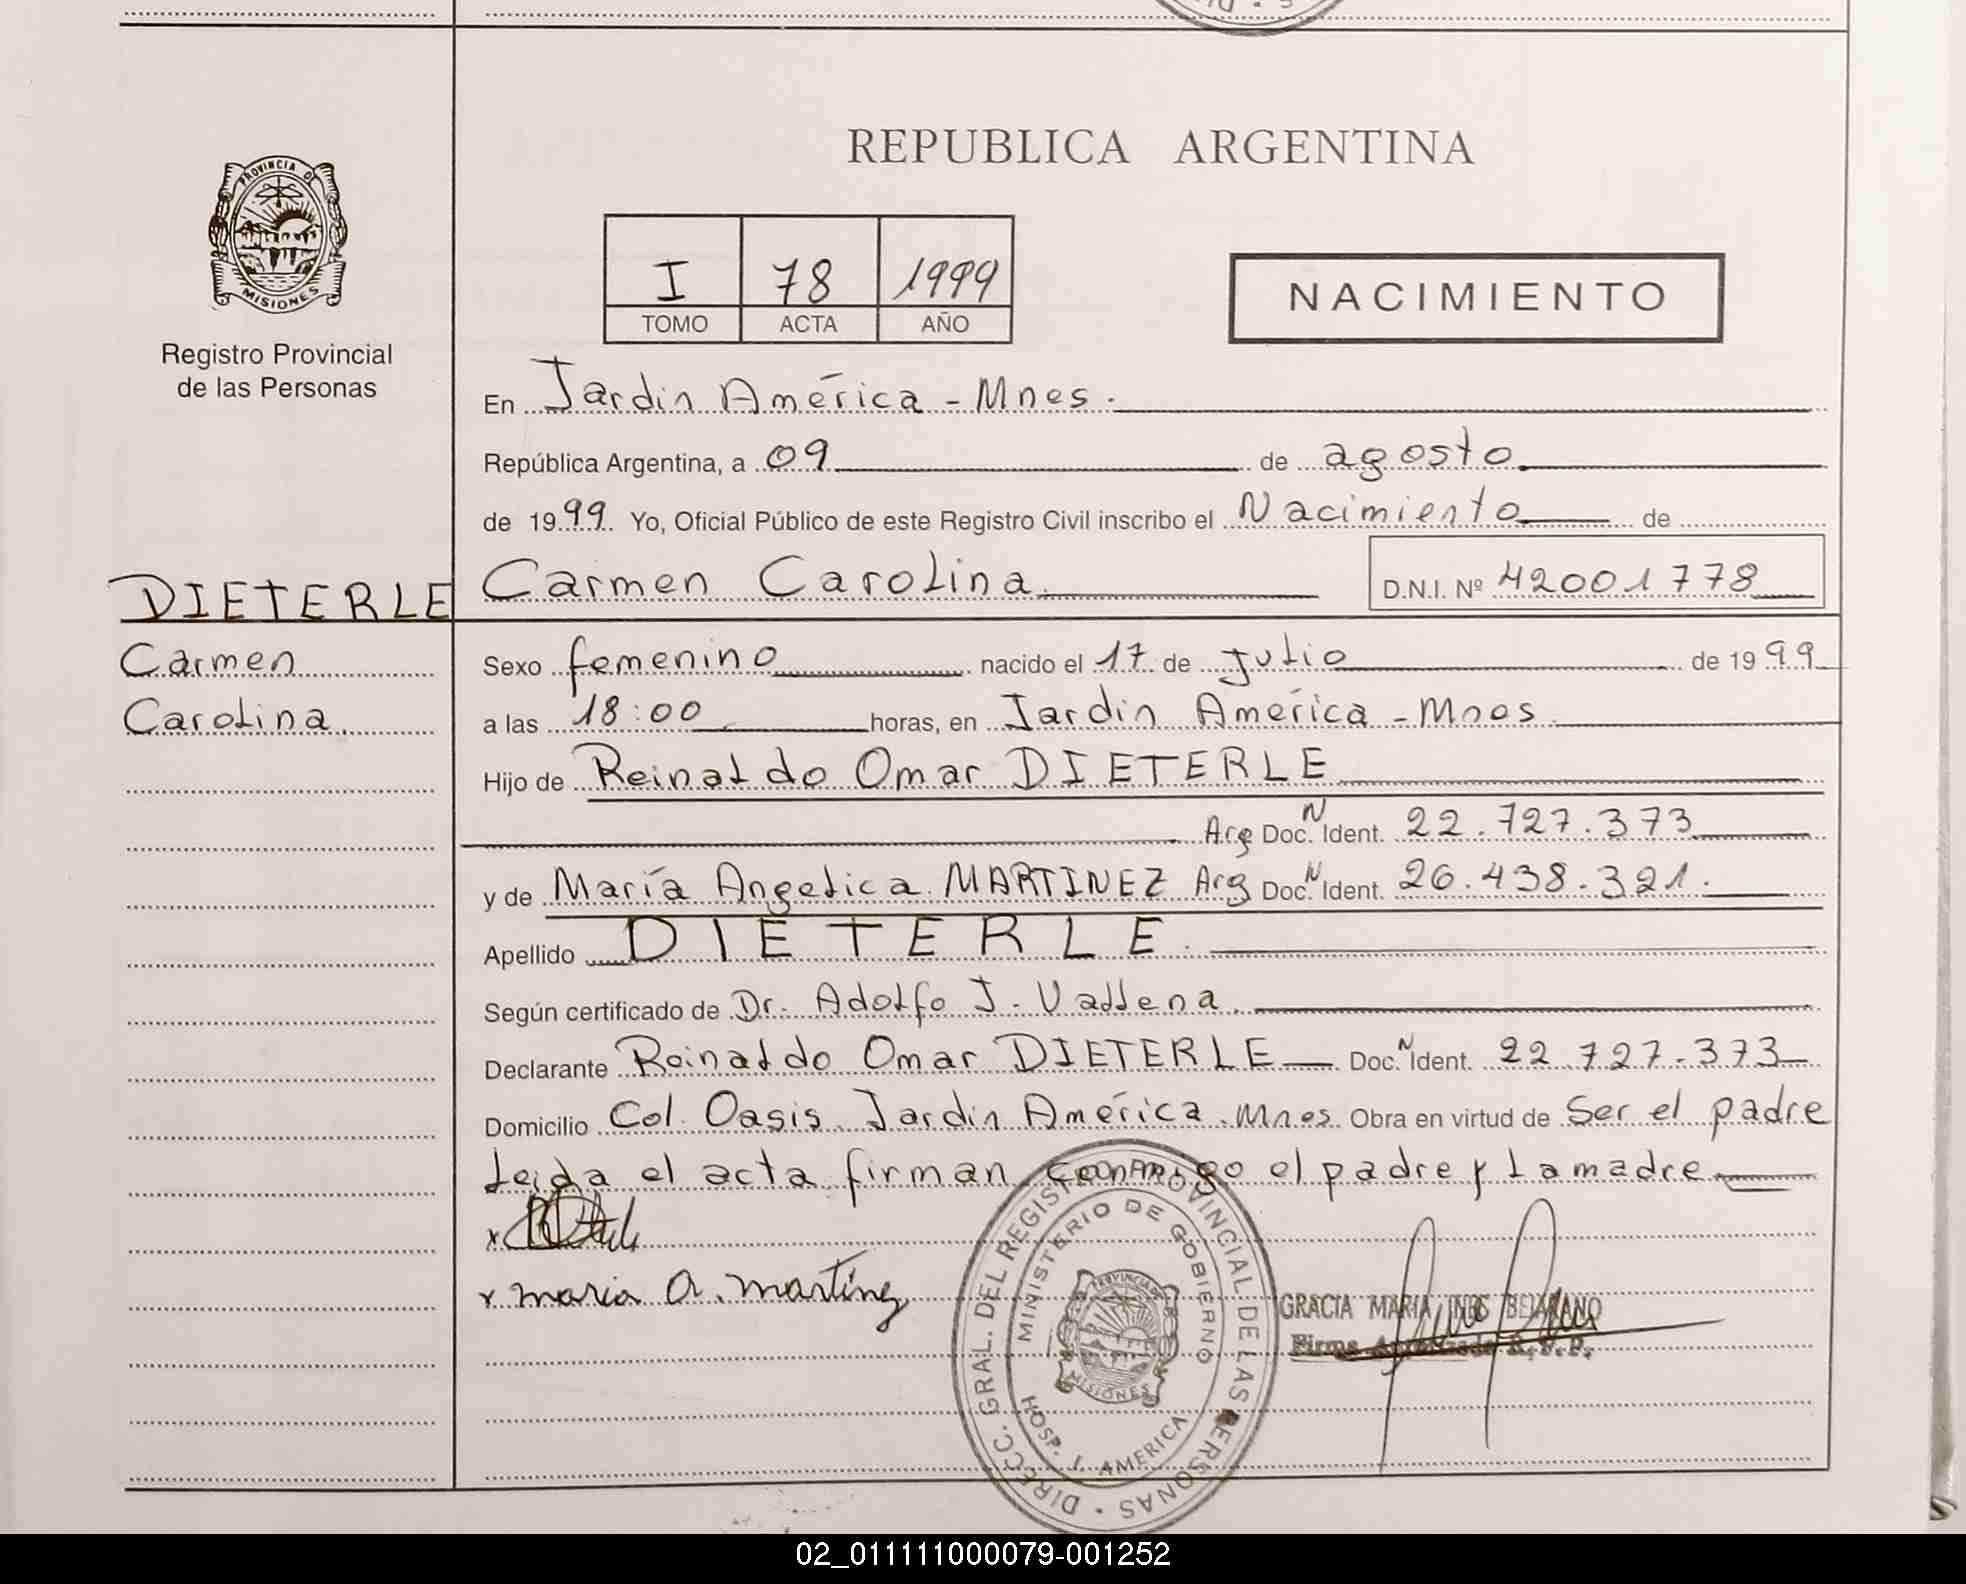 REPUBLICA ARGENTINA
PROVINCIA DE
MISIONES
Registro Provincial
de las Personas
I 78 1999
TOMO ACTA AÑO
NACIMIENTO
En Jardin América - Mnes.
República Argentina, a 09 de agosto
de 1999 Yo, Oficial Público de este Registro Civil inscribo el Nacimiento de
DIETERLE Carmen Carolina D.N.I. Nº 42001778
Carmen
Carolina.
Sexo femenino nacido el 17 de Julio de 1999
a las 18:00 horas, en Jardin América - Mnes.
Hijo de Reinaldo Omar DIETERLE
Arg Doc. N Ident. 22.727.373
y de María Angelica MARTINEZ Arg Doc. N Ident. 26.438.321.
Apellido DIETERLE.
Según certificado de Dr. Adolfo J. Vallena.
Declarante Reinaldo Omar DIETERLE Doc. N Ident. 22.727.373
Domicilio Col. Oasis. Jardin América. Mnes. Obra en virtud de Ser el padre
Leida el acta firman conmigo el padre y la madre
x
x maria A. martinez
GRACIA MARIA INES BEJARANO
Firma Autorizada R.P.P.
DIRECC. GRAL. DEL REGISTRO PROVINCIAL DE LAS PERSONAS
MINISTERIO DE GOBIERNO
HOSP. J. AMERICA
PROVINCIA DE
MISIONES
02_011111000079-001252